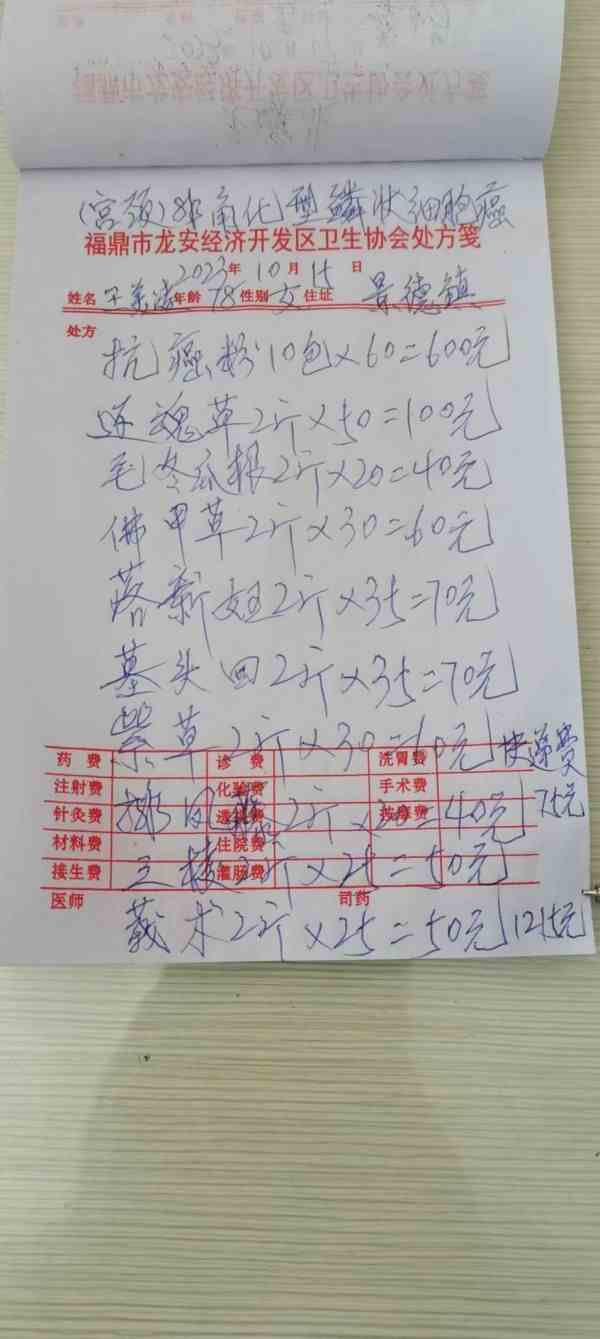 (宫颈)非角化型鳞状细胞癌
福鼎市龙安经济开发区卫生协会处方笺
2023年10月15日
姓名 年龄78性别女住址 景德镇
处方
抗癌粉10包×60=600元
还魂草2斤×50=100元
毛冬瓜根2斤×20=40元
佛甲草2斤×30=60元
落新妇2斤×35=70元
墓头回2斤×35=70元
紫草2斤×30=60元 快递费
药费 诊费 洗胃费
注射费 化验费 手术费
75元
针灸费 透视费 按摩费
排风藤2斤×20=40元
材料费 住院费
三棱2斤×25=50元
接生费 灌肠费
医师 司药
莪术2斤×25=50元 1215元